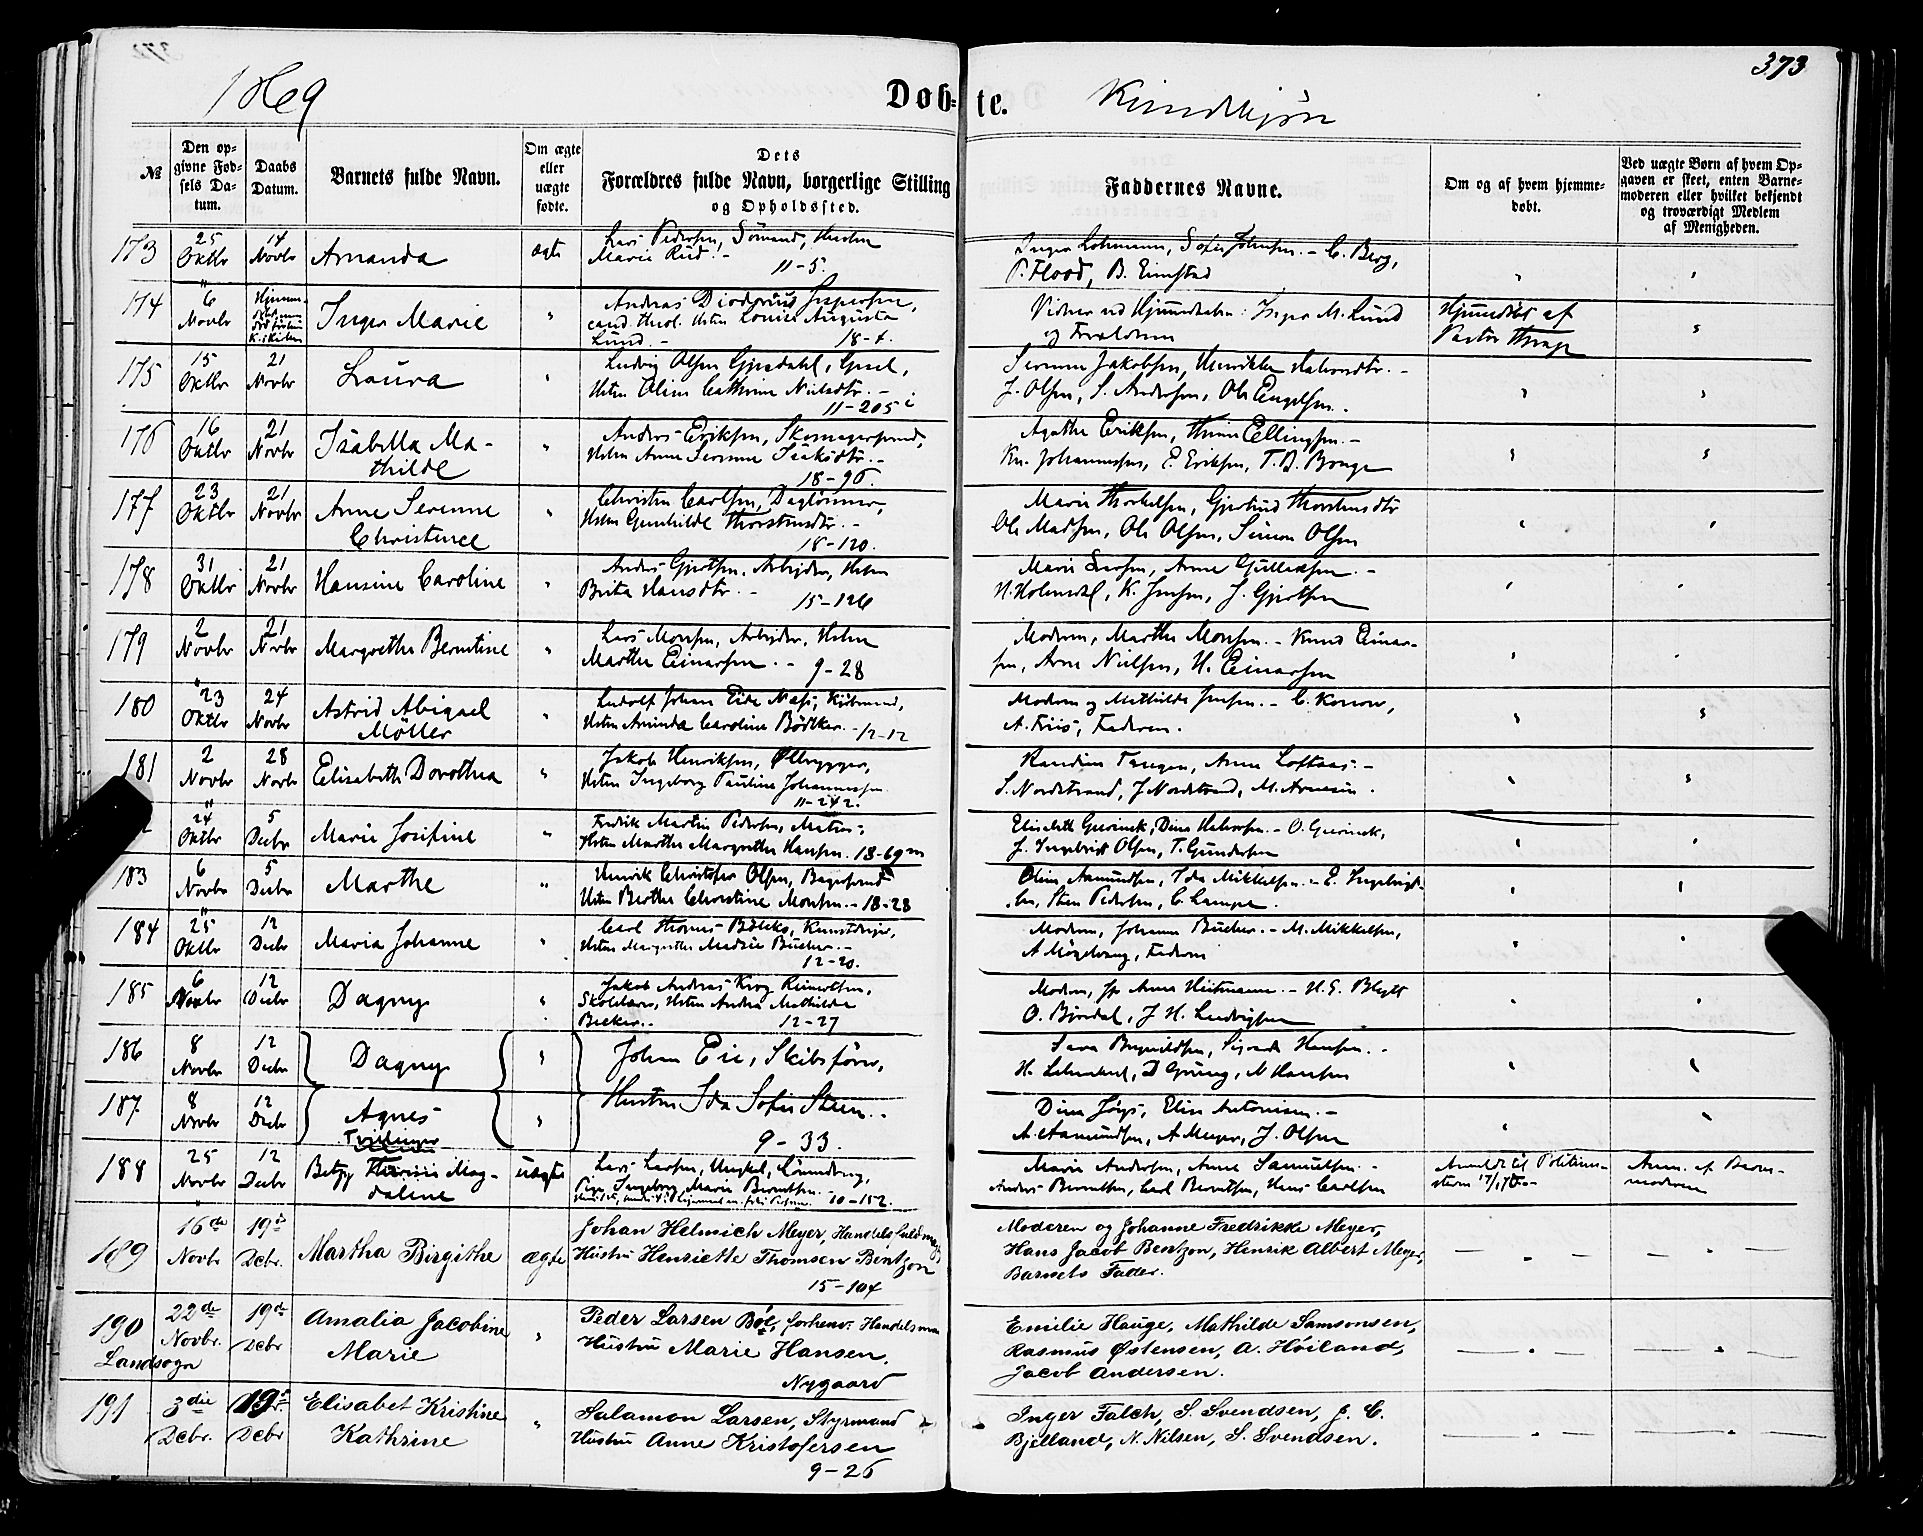 373
1869
Døb-te.
Kvindekjøn
№
Den opgivne Fødsels Datum.
Daabs Datum.
Barnets fulde Navn.
Om ægte eller uægte fødte.
Dets Forældres fulde Navn, borgerlige Stilling og Opholdssted.
Faddernes Navne.
Om og af hvem hjemmedøbt.
Ved uægte Børn af hvem Opgaven er skeet, enten Barnemoderen eller hvilket bekjendt og troværdigt Medlem af Menigheden.
173 25 Oktbr 14 Novbr Amanda ægte
Lars Pedersen, Sømand, Hustru
Marie Rud.-
11-5.
Inger Lohmann, Sofie Johnsen.- C. Berg,
P. Flood, B. Eimstad
174 6 Novbr
Inger Marie "
Andreas Diodorius Jespersen,
cand. theol. Hstru Louise Augusta
Lund.-
18-t.
Vidner ved Hjemmedaaben: Inger M. Lund
og Forældrene
Hjemdøbt af
Pastor Thrap
175 15 Oktbr 21 Novbr Laura "
Ludvig Olsen Gjesdahl,
Hstru Oline Cathrine Nielsdtr.-
11-205 i
Serine Jakobsen, Henrikke Halvorsdtr.-
J. Olsen, S. Andersen, Ole Engelsen.
176 16 Oktbr 21 Novbr Isabella Ma-
thilde "
Anders Eriksen, Skomagersvend,
Hstru Anne Serine Isaksdtr.-
18-96.
Agathe Eriksen, Ellingsen.-
Kn. Johannessen, E. Eriksen, T. B. Bonge
177 23 Oktbr 21 Novbr Anne Serine
Christence "
Christen Carlsen, Daglønner,
Hstru Gunhilde Thorstensdtr.-
18-120.
Marie Thorkelsen, Gjertrud Thorstensdtr
Ole Madsen, Ole Olsen, Simon Olsen
178 31 Oktbr 21 Novbr Hansine Caroline "
Anders Gjertsen, Arbejder, Hstru
Brita Hansdtr.-
15-126
Marie Larsen, Anne Gulliksen.-
H. Holmedal, K. Jensen, J. Gjertsen
179 2 Novbr 21 Novbr Margrethe Berntine "
Lars Monsen, Arbejder, Hstru
Marthe Einarsen.- 9-28
Moderen, Marthe Monsen.- Knud Einar-
sen, Arne Nielsen, H. Einarsen
180 23 Oktbr 24 Novbr Astrid Abigael
Möller "
Ludolf Johan Eide Næss, Kjøbmand,
Hstru Aminda Caroline Bödtker.- 12-12
Moderen og Mathilde Jensen.- C. Konow,
A. Friis, Faderen.
181 2 Novbr 28 Novbr Elisabeth Dorothea "
Jakob Henriksen, Ølbrygger,
Hstru Ingeborg Pauline Johannessen
11-242.
Randine Tangen, Anne Loftaas.-
S. Nordstrand, J. Nordstrand, M. Arnesen.
24 Oktbr 5 Decbr Marie Josefine "
Fredrik Martin Pedersen, Matros,
Hstru Marthe Margrethe Hansen. 18-69m
Elisabeth Guvinek, Dina Halvorsen.- O. Guvinek,
J. Ingebrigt Olsen, T. Gundersen
183 6 Novbr 5 Decbr Marthe "
Henrik Christofer Olsen, Bagersvend
Hstru Berthe Christine Monsen.- 18-28
Oline Aamundsen, Ida Mikkelsen.- E. Ingebrigt-
sen, Sten Pedersen, C. Lampe.
184 25 Oktbr 12 Decbr Maria Johanne "
Carl Thomas
Hstru Margrethe Madsie Bucher.-
12-20.
Moderen, Johanne Bucher.- M. Mikkelsen,
A. Faderen
185 6 Novbr 12 Decbr Dagny "
Jakob Andreas Krog Reinertsen,
Skolelærer, Hstru Andrea Mathilde
Becker.-
12-27
Moderen, Jfr Anna Heitmann.- H. G. Blytt
O. Bjørdal, J. H. Ludvigsen
186 8 Novbr 12 Decbr Dagny "
Johan Eie, Skibsfører,
H. Lehmkuhl, D Grung, N Hansen
187 8 Novbr 12 Decbr Agnes "
Tvillinger
Hustru Ida Sofie Steen.-
9-33.
Elise Antonisen.-
A. Aamundsen, A Meyer, J. Olsen
188 25 Novbr 12 Decbr Betzy Mag-
dalene uægte
Lars Larsen, Ungkarl,
Pige Ingeborg Marie Berntsen.
10-152.
Marie Andersen, Anne Samuelsen.-
Anders Berntsen, Carl Berntsen, Hans Carlsen
Anmeldt til Politime-
steren 17/1 70.-
Anm. af Barne-
moderen
189 16de Novbr 19de Dcbr. Martha Birgithe ægte
Johan Helmich Meyer, Handelsfuldmægt
Hustru Henriette Thomsen Bentzon
15-104
Moderen og Johanne Fredrikke Meyer,
Hans Jacob Bentzon, Henrik Albert Meyer,
Barnets Fader.
190 22de Novbr. 19de Dcbr Amalia Jacobine
Marie "
Landsogn
Peder Larsen Böe, forhenv. Handelsman
Hustru Marie Hansen.
Nygaard
Emilie Hauge, Mathilde Samsonsen,
Rasmus Østensen, A. Höiland,
Jacob Andersen.
191 3die Dcbr. 19de Dcbr Elisabet Kristine
Kathrine "
Salamon Larsen, Styrmand
Hustru Anne Kristofersen
9-26
Inger Falch, S. Svendsen, J. C.
Bjelland, N. Nilsen, S. Svendsen.